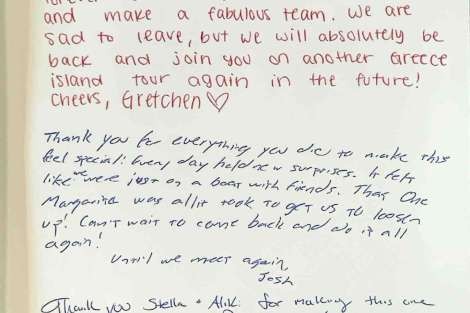 and make a fabulous team. We are
sad to leave, but we will absolutely be
back and join you on another Greece
island tour again in the future!
Cheers, Gretchen ♡
Thank you for everything you did to make this
feel special! Every day held new surprises. It felt
like we were just on a boat with friends. That One
Margarita was all it took to get us to loosen
up! Can't wait to come back and do it all
again!
Until we meet again,
Josh
Thank you Stella + Alik for making this one